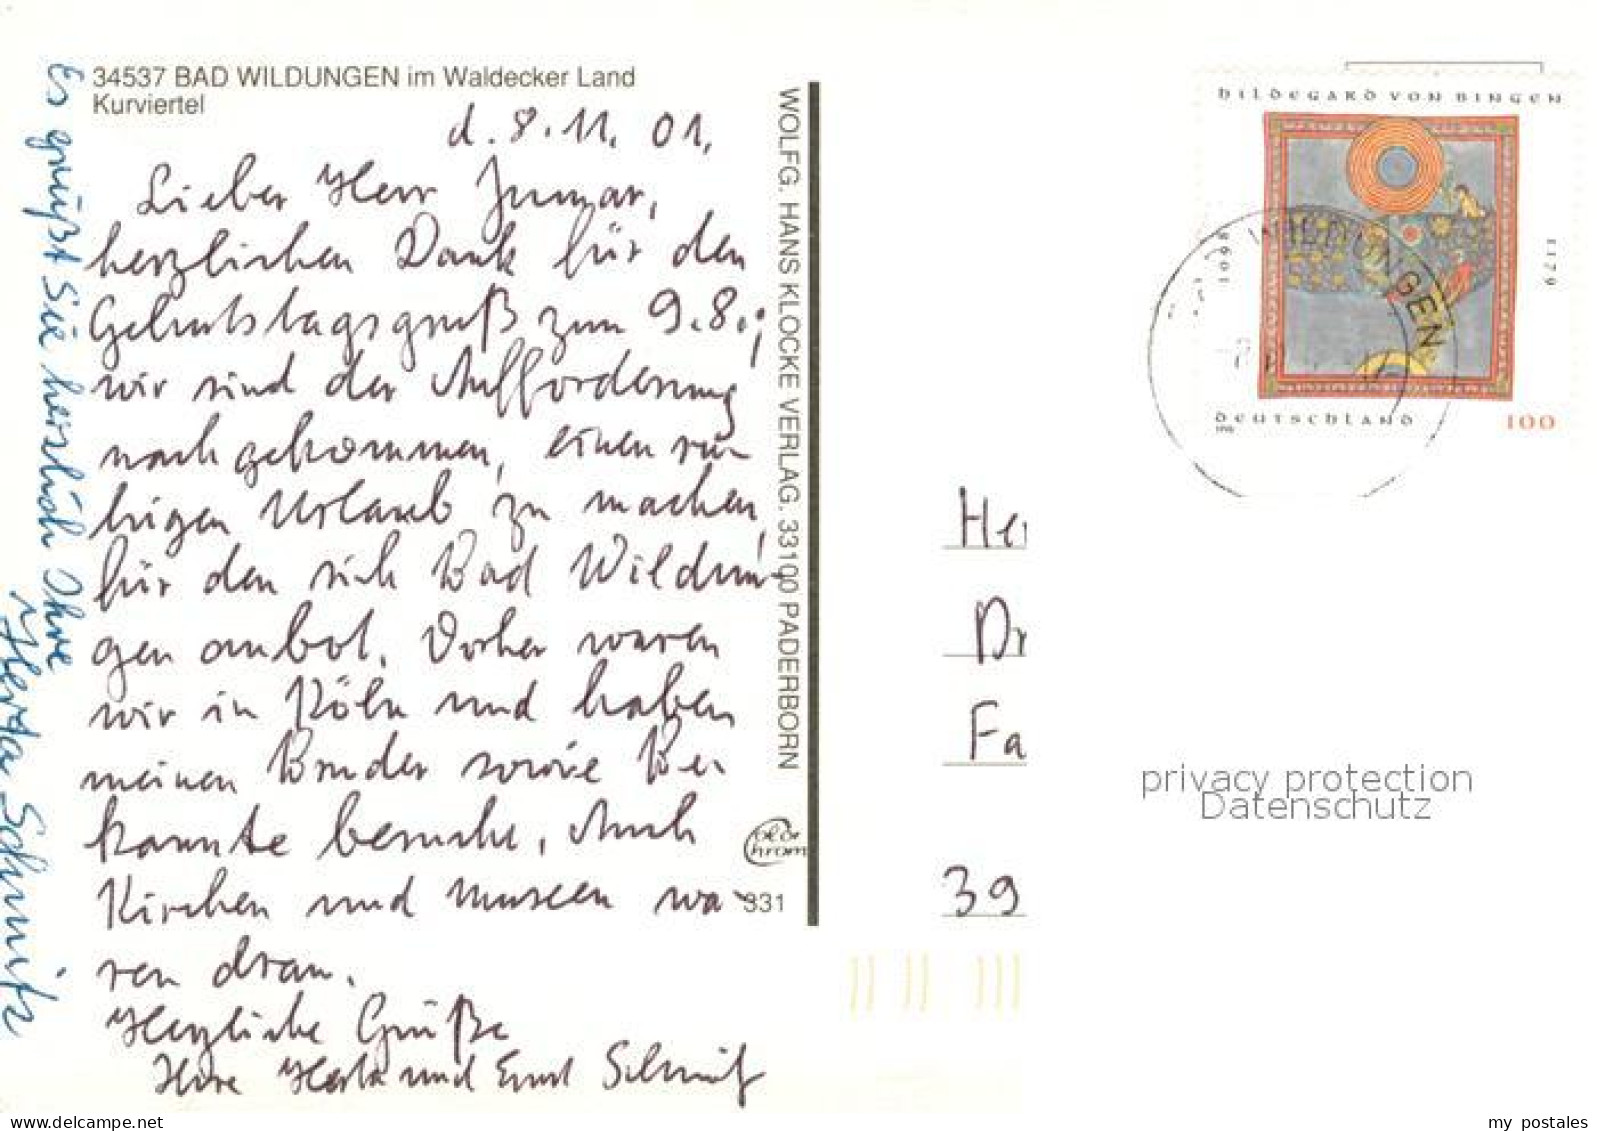 34537 BAD WILDUNGEN im Waldecker Land
Kurviertel
d. 8.11.01.
Lieber Herr
herzlichen Dank für den
Geburtstagsgruß zum 9.8.;
wir sind der Aufforderung
nachgekommen, einen ru-
higen Urlaub zu machen,
für den sich Bad Wildun-
gen anbot. Vorher waren
wir in Köln und haben
meinen Bruder sowie Be-
kannte besucht. Auch
Kirchen und Museen wa-
ren dran.
Herzliche Grüße
Ihre Herta und Ernst Schmitz
Es grüßt Sie herzlich Ihre
Herta Schmitz
WOLFG. HANS KLOCKE VERLAG. 33100 PADERBORN
color
chrom
331
HILDEGARD VON BINGEN
1098
1179
WILDUNGEN
DEUTSCHLAND
1998
100
He
Dr
Fa
39
privacy protection
Datenschutz
delcampe.net
my_postales